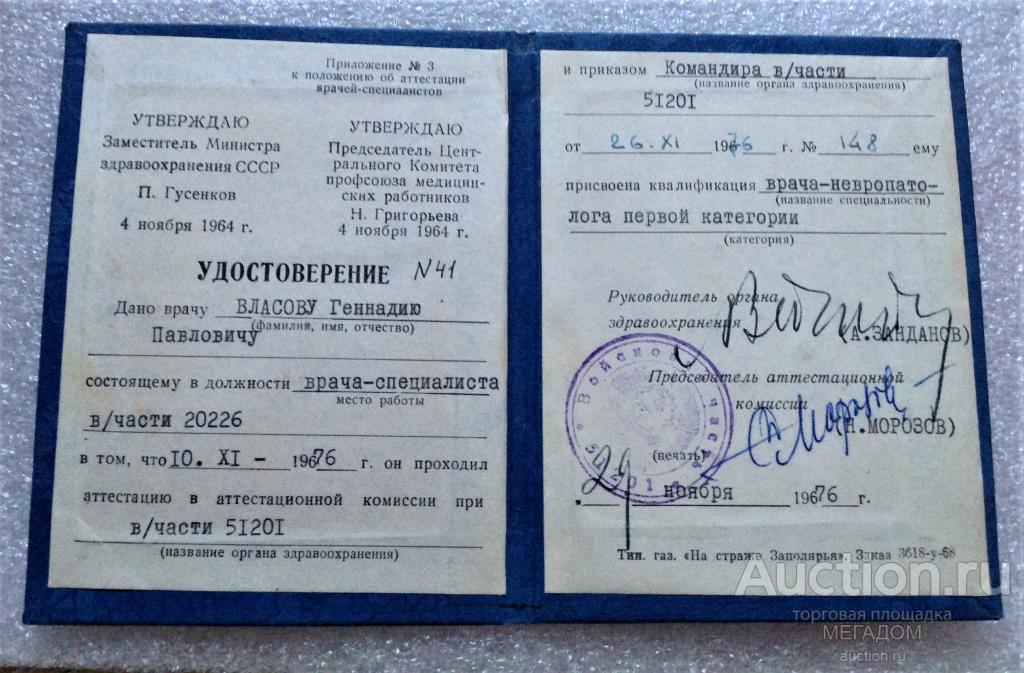 Приложение № 3
к положению об аттестации
врачей-специалистов
УТВЕРЖДАЮ
Заместитель Министра
здравоохранения СССР
П. Гусенков
4 ноября 1964 г.
УТВЕРЖДАЮ
Председатель Цент-
рального Комитета
профсоюза медицин-
ских работников
Н. Григорьева
4 ноября 1964 г.
УДОСТОВЕРЕНИЕ N 41
Дано врачу ВЛАСОВУ Геннадию
(фамилия, имя, отчество)
Павловичу
состоящему в должности врача-специалиста
место работы
в/части 20226
в том, что 10. XI - 19676 г. он проходил
аттестацию в аттестационной комиссии при
в/части 51201
(название органа здравоохранения)
и приказом Командира в/части
(название органа здравоохранения)
51201
от 26.XI 1976 г. № 148 ему
присвоена квалификация врача-невропато-
(название специальности)
лога первой категории
(категория)
Руководитель органа
здравоохранения
(А.ЗАНДАНОВ)
Председатель аттестационной
комиссии
(Н.МОРОЗОВ)
(печать)
Войсковая часть 51201
29 ноября 19676 г.
Тип. газ. «На страже Заполярья». Заказ 3618-у-68
Auction.ru
торговая площадка
МЕГАДОМ
auction.ru